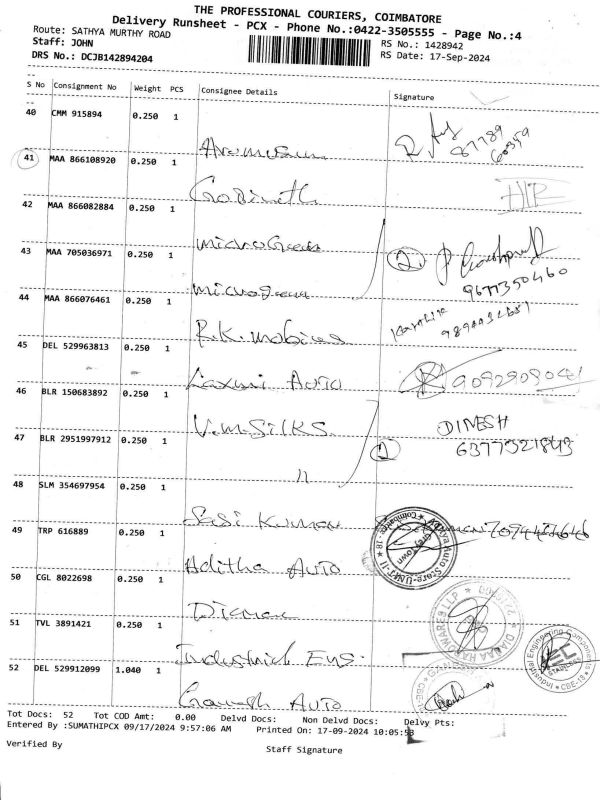 THE PROFESSIONAL COURIERS, COIMBATORE
Delivery Runsheet - PCX - Phone No.:0422-3505555 - Page No.:4
Route: SATHYA MURTHY ROAD
Staff: JOHN
RS No.: 1428942
DRS No.: DCJB142894204
RS Date: 17-Sep-2024
S No Consignment No Weight PCS Consignee Details Signature
40 CMM 915894 0.250 1
41 MAA 866108920 0.250 1 Gobinath
42 MAA 866082884 0.250 1 microGreen
43 MAA 705036971 0.250 1 microgreen
2
9677350460
44 MAA 866076461 0.250 1 R.K. mobiles
Karthik
45 DEL 529963813 0.250 1 Laxmi Auto 9092909041
46 BLR 150683892 0.250 1 V.M. SILKS
DINESH
6377321843
47 BLR 2951997912 0.250 1 11
48 SLM 354697954 0.250 1 Sasi Kumar
49 TRP 616889 0.250 1 Aditha Auto
50 CGL 8022698 0.250 1
51 TVL 3891421 0.250 1 Industrial Eng.
52 DEL 529912099 1.040 1 Ganesh Auto
Tot Docs: 52 Tot COD Amt: 0.00 Delvd Docs: Non Delvd Docs: Delvy Pts:
Entered By :SUMATHIPCX 09/17/2024 9:57:06 AM Printed On: 17-09-2024 10:05:53
Verified By
Staff Signature